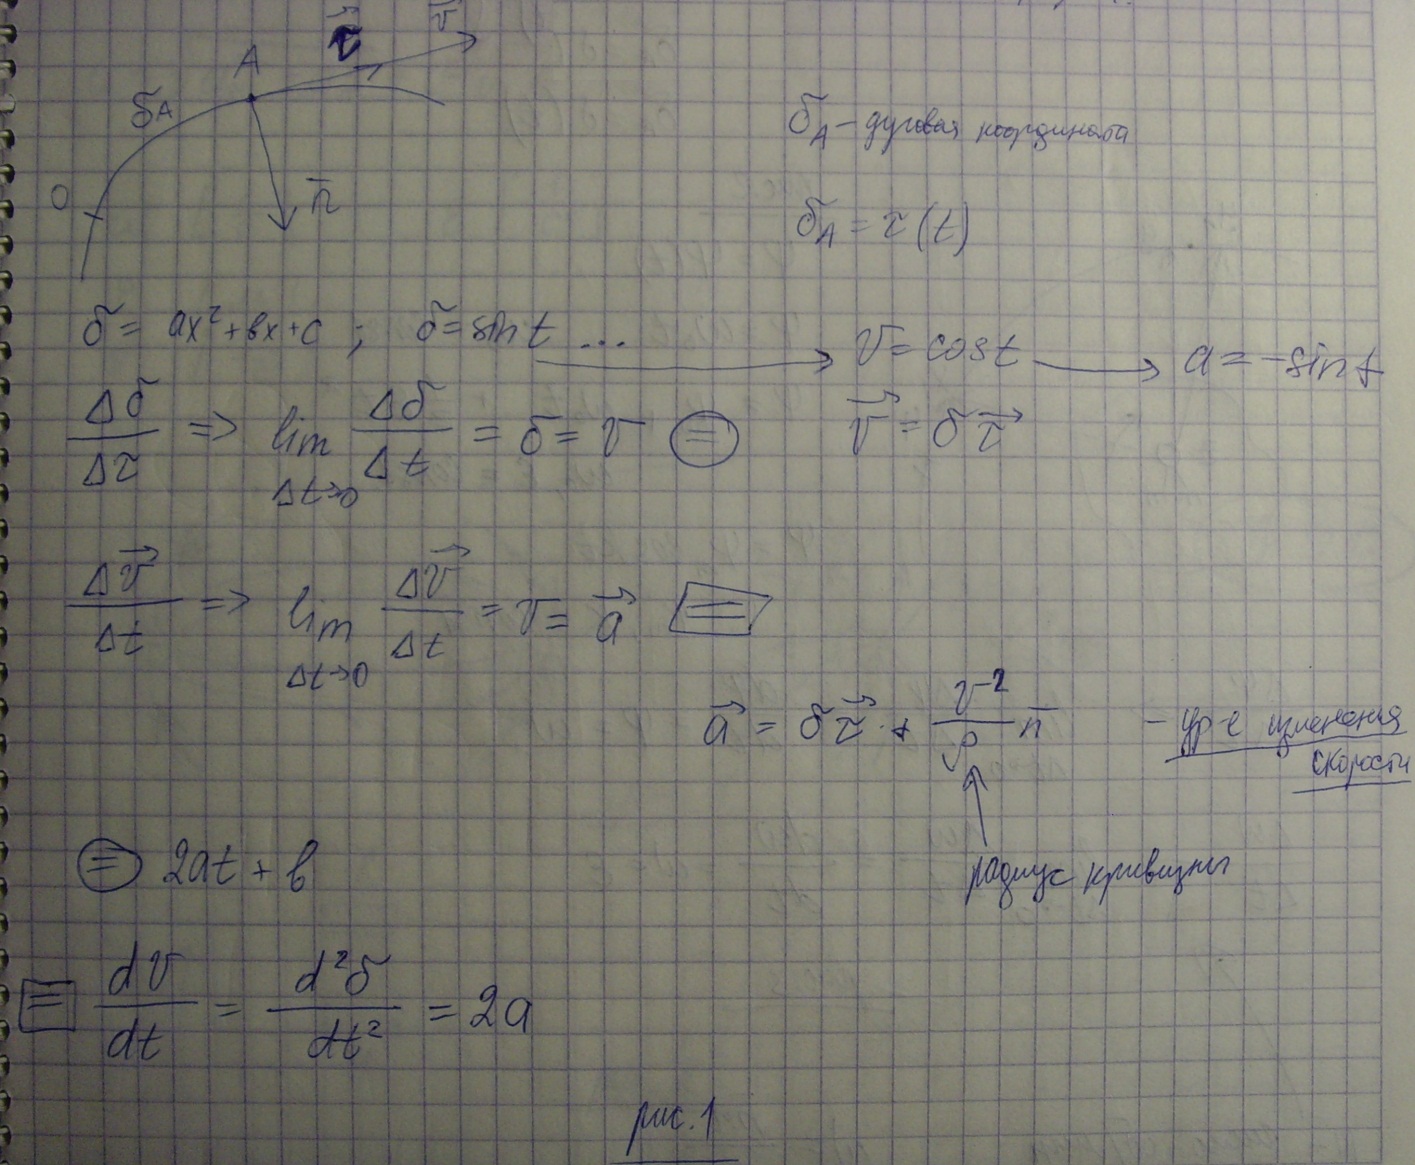 A
τ
v̄
бA
O
n̄
бA – дуговая координата
бA = τ(t)
б = ax² + bx + c ; б = sin t ... → v = cos t → a = -sin t
Δб/Δτ => lim Δt→0 Δб/Δt = б = v ⊜ v⃗ = бτ⃗
Δv⃗/Δt => lim Δt→0 Δv⃗/Δt = v = a⃗ [=]
a⃗ = бτ⃗ + v²/ρ n̄ – ур-е изменения
скорости
радиус кривизны
⊜ 2at + b
[=] dv/dt = d²б/dt² = 2a
рис. 1